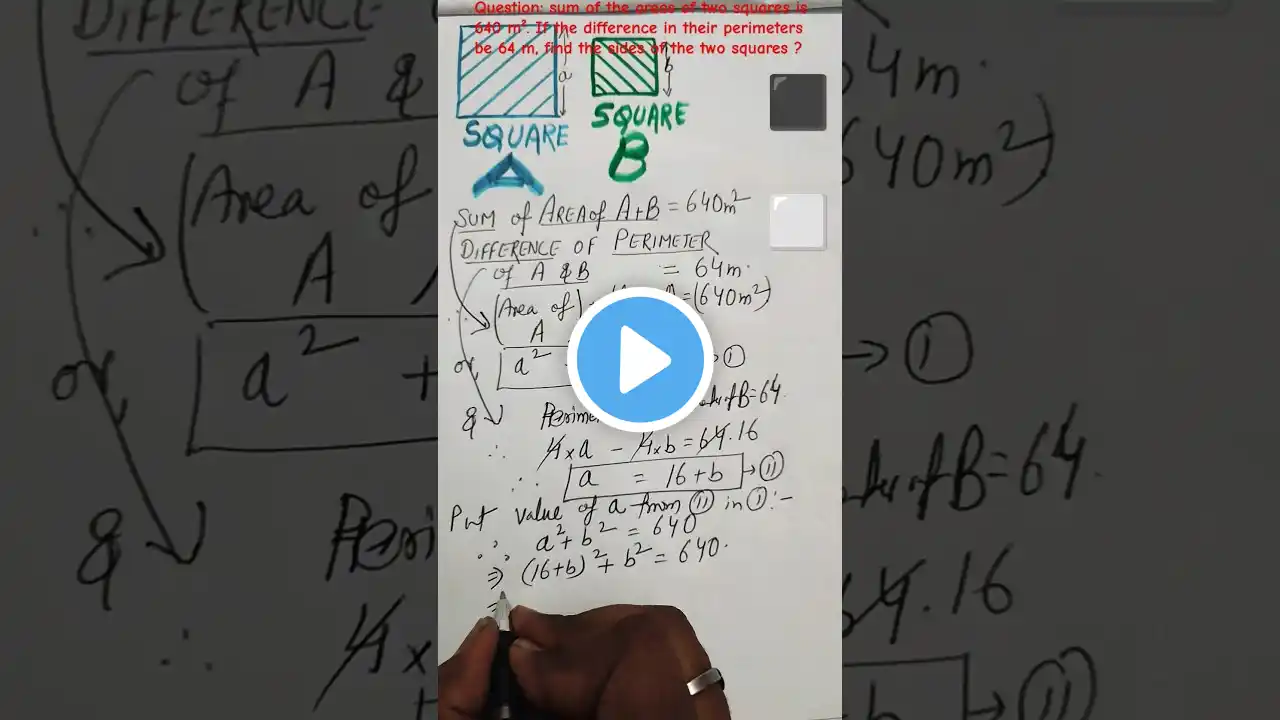 Question: sum of the areas of two squares is
640 m². If the difference in their perimeters
be 64 m, find the sides of the two squares ?
a
b
SQUARE
A
SQUARE
B
SUM of AREA of A+B = 640m²
DIFFERENCE OF PERIMETER
of A & B = 64m.
∴ (Area of A) = (640m²)
or, a² → (i)
& of B = 64.
∴ 4×a - 4×b = 64.16
∴ a = 16+b → (ii)
Put value of a from (ii) in (i) :-
∴ a² + b² = 640
⇒ (16+b)² + b² = 640.
⇒